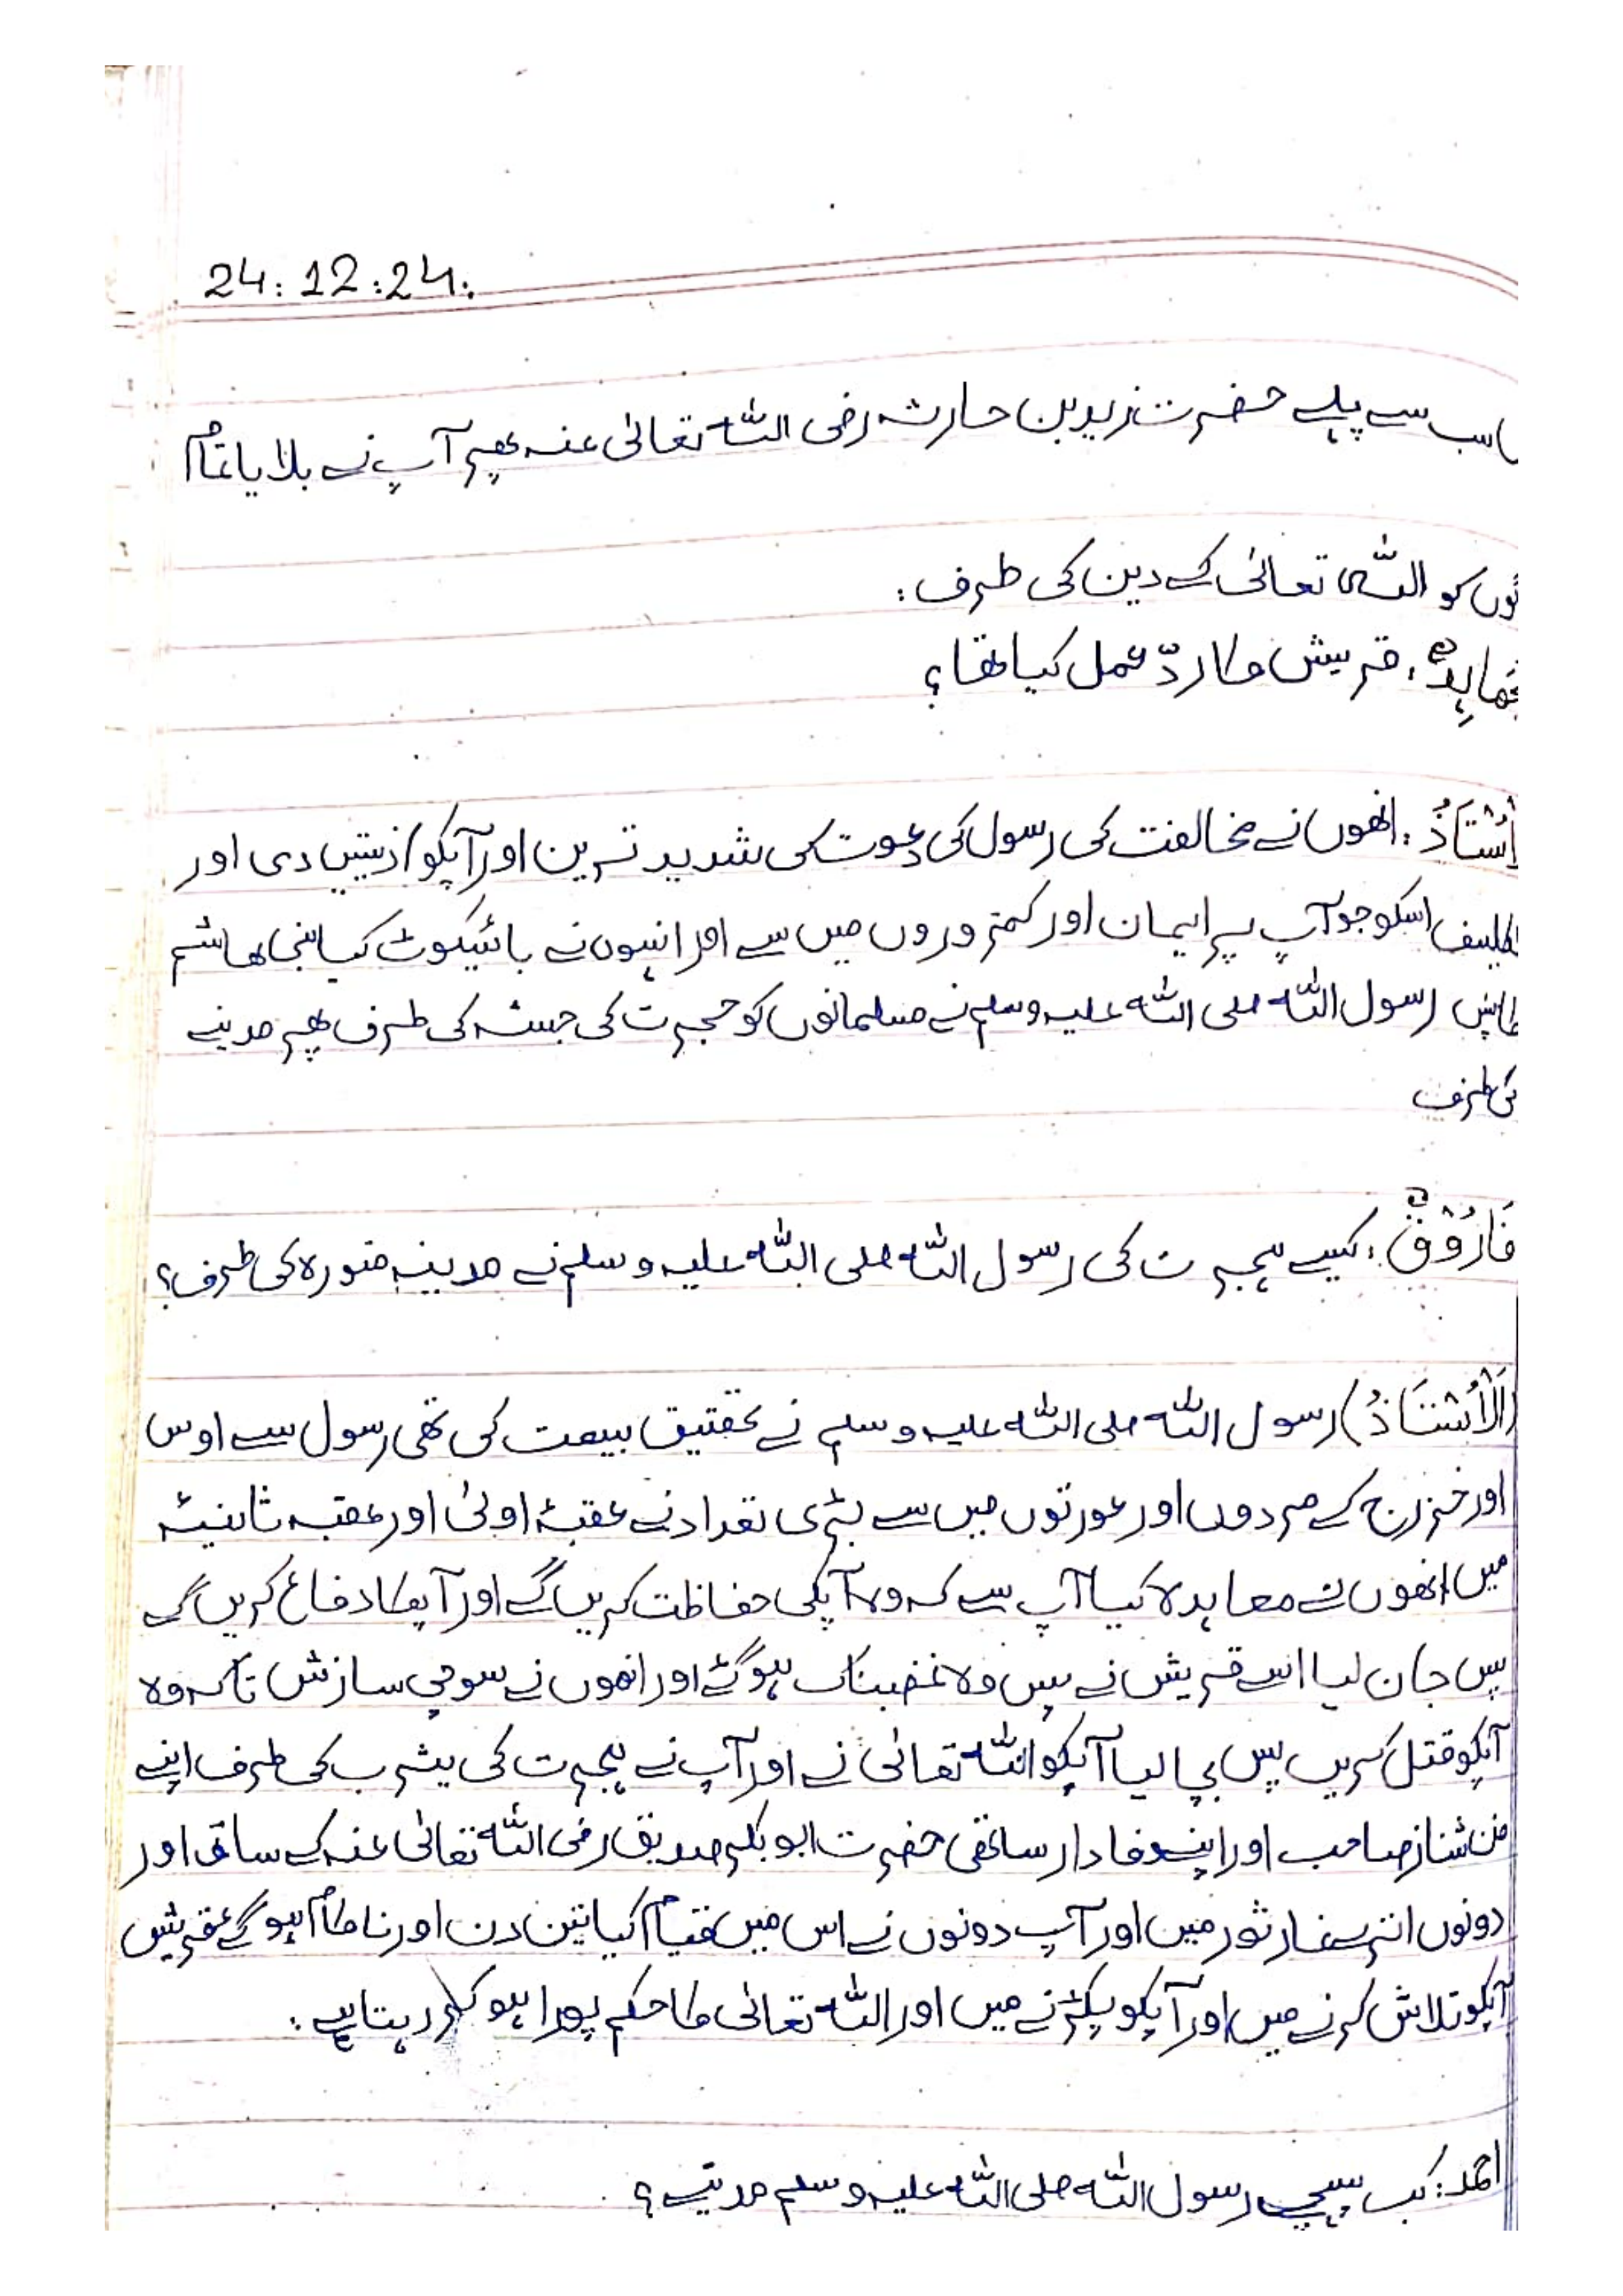 24:12:24:
سب سے پہلے حضرت زید بن حارثہ رضی اللہ تعالیٰ عنہ پھر آپ نے بلایا تمام
کو اللہ تعالیٰ کے دین کی طرف :
قریش کا ردّ عمل کیا تھا ؟
اُسْتَاذُ : انھوں نے مخالفت کی رسول کی دعوت کی شدید ترین اور آپکو اذیتیں دی اور
اسکو جو آپ پر ایمان اور کمزوروں میں سے اور انہوں نے بائیکوٹ کیا بنی ھاشم
کا پس رسول اللہ صلی اللہ علیہ وسلم نے مسلمانوں کو حجرت کی حبشہ کی طرف پھر مدینے
کی طرف
فَارُوْقٌ : کیسے ہجرت کی رسول اللہ صلی اللہ علیہ وسلم نے مدینہ منورہ کی طرف ؟
(اَلْاُسْتَاذُ) رسول اللہ صلی اللہ علیہ وسلم نے تحقیق بیعت کی تھی رسول سے اوس
اور خزرج کے مردوں اور عورتوں میں سے بڑی تعداد نے عقبۂ اولیٰ اور عقبہ ثانیۂ
میں انھوں نے معاہدہ کیا آپ سے کہ وہ آپکی حفاظت کریں گے اور آپکا دفاع کریں گے
پس جان لیا اسے قریش نے پس وہ غضبناک ہو گئے اور انھوں نے سوچی سازش تاکہ وہ
آپکو قتل کریں پس بچا لیا آپکو اللہ تعالیٰ نے اور آپ نے ہجرت کی یثرب کی طرف اپنے
صاحب اور اپنے وفادار ساتھی حضرت ابو بکر صدیق رضی اللہ تعالیٰ عنہ کے ساتھ اور
دونوں اترے غار ثور میں اور آپ دونوں نے اس میں قیام کیا تین دن اور ناکام ہو گے قریش
آپکو تلاش کرنے میں اور آپکو پکڑنے میں اور اللہ تعالیٰ کا حکم پورا ہو کر رہتا ہے :
احمد : کب پہنچے رسول اللہ صلی اللہ علیہ وسلم مدینے ؟